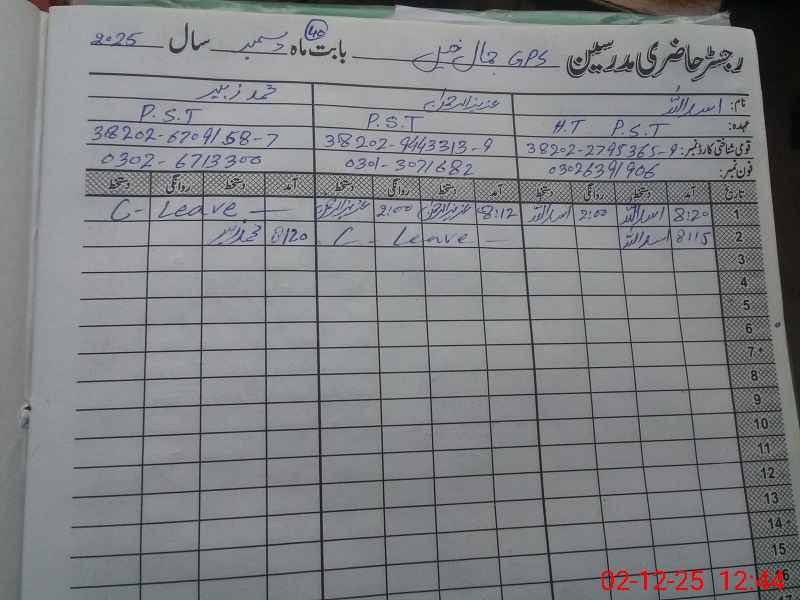 رجسٹر حاضری مدرسین GPS جمال خیل بابت ماہ دسمبر سال 2025
40
نام: اسداللہ عزیزالرحمٰن محمد زبیر
عہدہ: H.T P.S.T P.S.T P.S.T
قومی شناختی کارڈ نمبر: 38202-2795365-9 38202-9443313-9 38202-6709158-7
فون نمبر: 03026391906 0301-3071682 0302-6713300
تاریخ آمد دستخط روانگی دستخط آمد دستخط روانگی دستخط آمد دستخط روانگی دستخط
1 8:20 اسداللہ 2:00 اسداللہ 8:12 عزیزالرحمٰن 2:00 عزیزالرحمٰن C- Leave -
2 8:15 اسداللہ C - Leave - 8:20
3
4
5
6
7
8
9
10
11
12
13
14
15
02-12-25 12:44